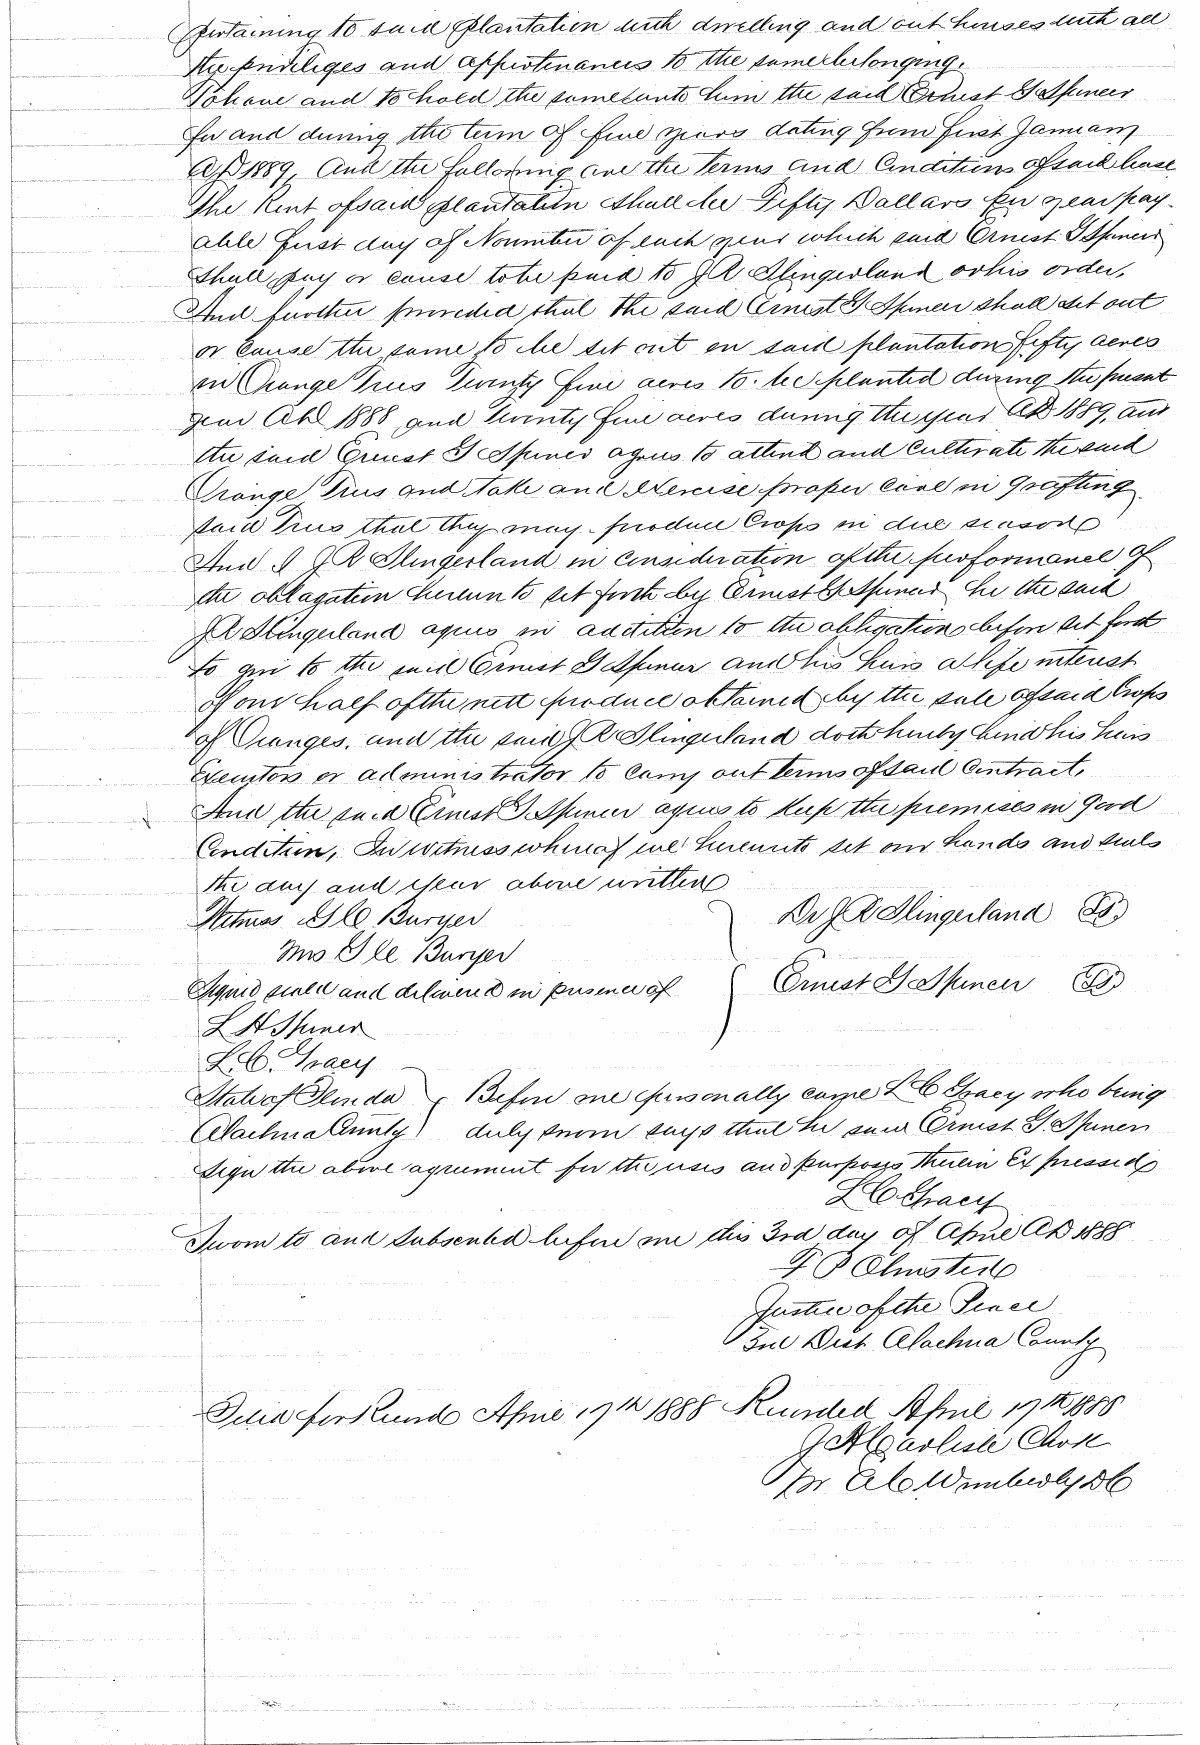 pertaining to said plantation with dwelling and out houses with all
the priviliges and appertinances to the same belonging.
To have and to hold the same unto him the said Ernest G Spencer
for and during the term of five years dating from first January
AD 1889, And the following are the terms and Conditions of said lease
The Rent of said plantation shall be Fifty Dollars per year pay-
able first day of November of each year which said Ernest G Spencer
shall pay or cause to be paid to J R Slingerland or his order,
And further provided that the said Ernest G Spencer shall set out
or cause the same to be set out on said plantation fifty acres
in Orange Trees Twenty five acres to be planted during the present
year AD 1888 and Twenty five acres during the year AD 1889, and
the said Ernest G Spencer agrees to attend and Cultivate the said
Orange Trees and take and Exercise proper care in grafting
said Trees that they may produce Crops in due season
And I J R Slingerland in consideration of the performance of
the obligation hereunto set forth by Ernest G Spencer he the said
J R Slingerland agrees in addition to the obligations before set forth
to give to the said Ernest G Spencer and his heirs a life interest
of one half of the nett produce obtained by the sale of said Crops
of Oranges. and the said J R Slingerland doth hereby bind his heirs
Executors or administrator to carry out terms of said Contract.
And the said Ernest G Spencer agrees to keep the premises in good
Condition, In witness whereof we hereunto set our hands and seals
the day and year above written
Witness G C Buryer Dr J R Slingerland
Mrs G C Buryer
Signed sealed and delivered in presence of Ernest G Spencer
L H Spencer
L. C. Gracy
State of Florida Before me personally came L C Gracy who being
Alachua County duly sworn says that he saw Ernest G. Spencer
sign the above agreement for the uses and purposes therein Expressed
L C Gracy
Sworn to and subscribed before me this 3rd day of April AD 1888
F P Olmsted
Justice of the Peace
3rd Dist. Alachua County
Filed for Record April 17th 1888 Recorded April 17th 1888
J A Carlisle Clerk
Pr A C Wimberly DC